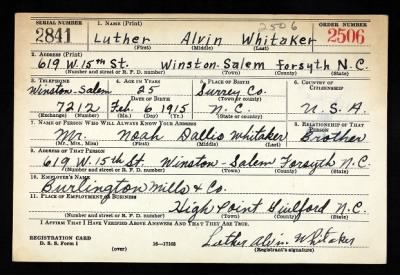 SERIAL NUMBER 1. NAME (Print) 2506 ORDER NUMBER
2841 Luther Alvin Whitaker 2506
(First) (Middle) (Last)
2. ADDRESS (Print)
619 W. 15th St. Winston-Salem Forsyth N.C.
(Number and street or R. F. D. number) (Town) (County) (State)
3. TELEPHONE 4. AGE IN YEARS 5. PLACE OF BIRTH 6. COUNTRY OF CITIZENSHIP
Winston-Salem 25 Surrey Co.
DATE OF BIRTH (Town or county)
7212 Feb. 6 1915 N.C. U.S.A.
(Exchange) (Number) (Mo.) (Day) (Yr.) (State or country)
7. NAME OF PERSON WHO WILL ALWAYS KNOW YOUR ADDRESS 8. RELATIONSHIP OF THAT PERSON
Mr. Noah Dallis Whitaker Brother
(Mr., Mrs., Miss) (First) (Middle) (Last)
9. ADDRESS OF THAT PERSON
619 W. 15th St. Winston-Salem Forsyth N.C.
(Number and street or R. F. D. number) (Town) (County) (State)
10. EMPLOYER'S NAME
Burlington Mills & Co.
11. PLACE OF EMPLOYMENT OR BUSINESS
High Point Guilford N.C.
(Number and street or R. F. D. number) (Town) (County) (State)
I AFFIRM THAT I HAVE VERIFIED ABOVE ANSWERS AND THAT THEY ARE TRUE.
REGISTRATION CARD
D. S. S. Form 1 (over) 16—17105 Luther Alvin Whitaker
(Registrant's signature)